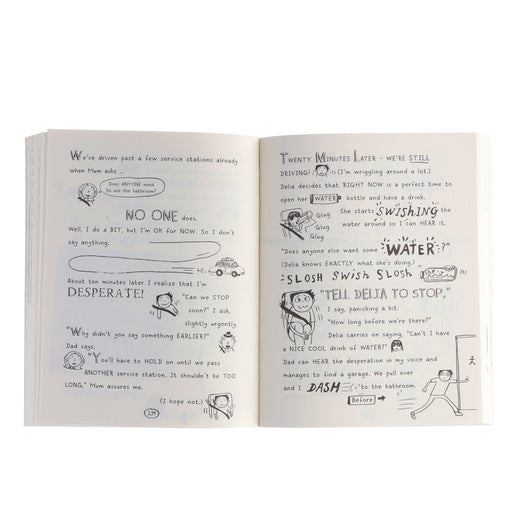 We've driven past a few service stations already
when Mum asks ...
Does ANYONE need
to use the bathroom?
NO ONE does.
Well, I do a BIT, but I'm OK for NOW. So I don't
say anything.
About ten minutes later I realize that I'm
DESPERATE!
"Can we STOP
soon?" I ask,
slightly urgently.
"Why didn't you say something EARLIER?"
Dad says.
"You'll have to HOLD on until we pass
ANOTHER service station. It shouldn't be TOO
LONG," Mum assures me.
(I hope not.)
139
TWENTY MINUTES LATER - WE'RE STILL
DRIVING! (I'm wriggling around a lot.)
Delia decides that RIGHT NOW is a perfect time to
open her WATER bottle and have a drink.
Glug
Glug
Glug
She starts SWISHING the
water around so I can HEAR it.
"Does anyone else want some WATER?"
(Delia knows EXACTLY what she's doing.)
SLOSH SWISH SLOSH
"TELL DELIA TO STOP,"
I say, panicking a bit.
"How long before we're there?"
Delia carries on saying, "Can't I have
A NICE COOL drink of WATER?"
Dad can HEAR the desperation in my voice and
manages to find a garage. We pull over
and I DASH to the bathroom.
Before